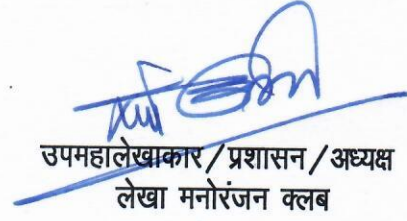 उपमहालेखाकार/प्रशासन/अध्यक्ष
लेखा मनोरंजन क्लब